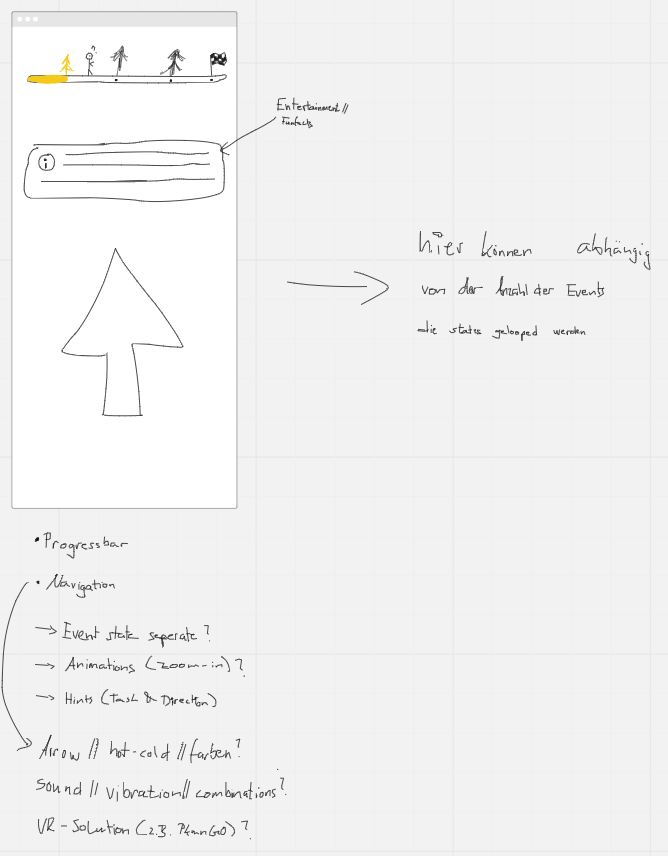 Entertainment //
Funfacts
i
hier können abhängig
von der Anzahl der Events
die states gelooped werden
• Progressbar
• Navigation
→ Event state seperate?
→ Animations (zoom-in)?
→ Hints (Task & Direction)
Arrow // hot-cold // farben?
Sound // vibration // combinations?
VR-Solution (z.B. PkmnGO)?